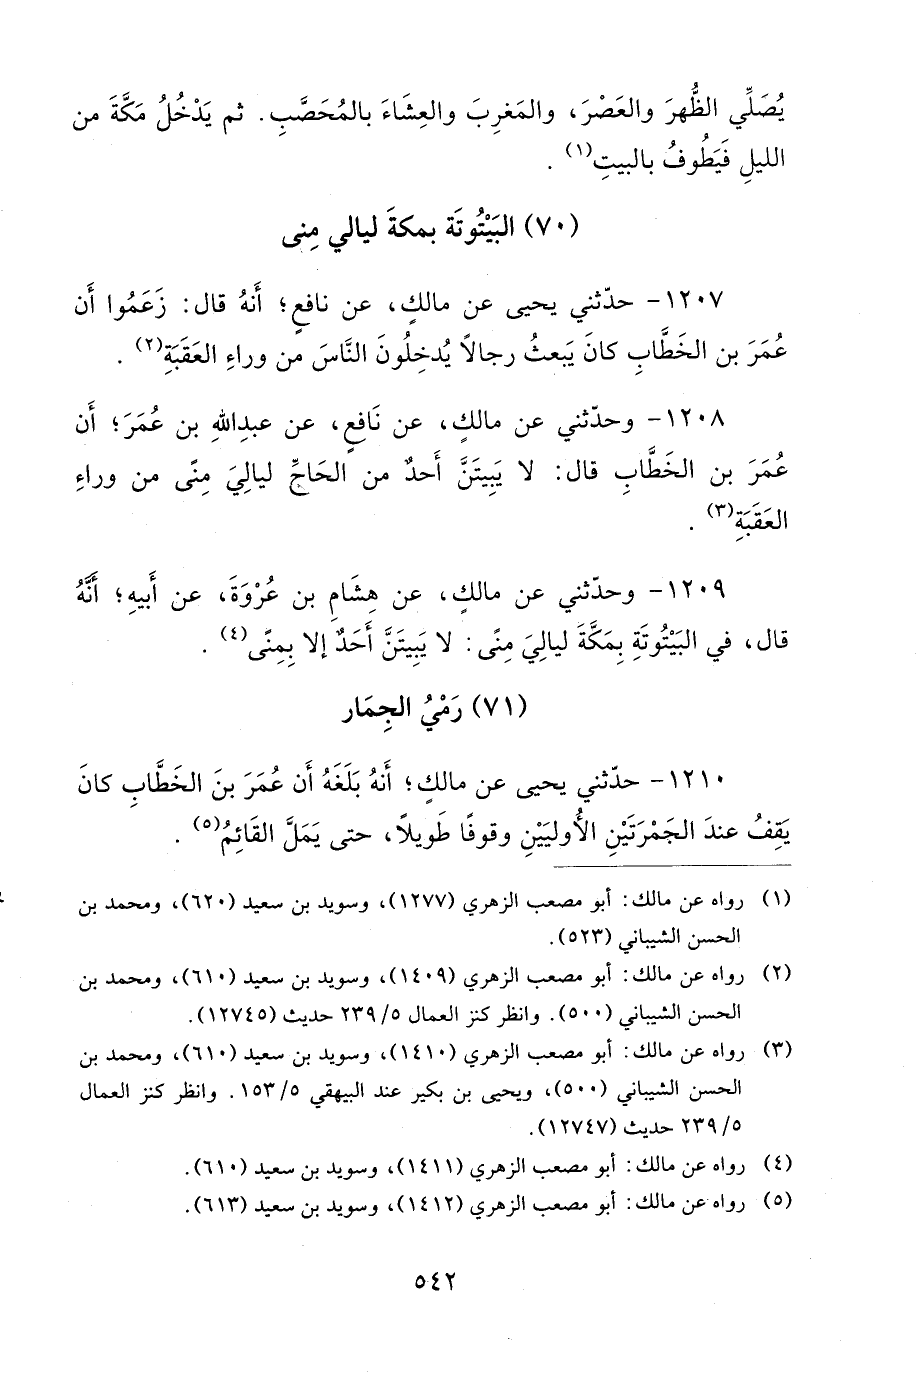 يُصَلِّي الظُّهرَ والعَصْرَ، والمَغرِبَ والعِشَاءَ بالمُحَصَّبِ. ثم يَدْخُلُ مَكَّةَ من
الليلِ فَيَطُوفُ بالبيتِ(١) .
(٧٠) البَيْتُوتَة بمكةَ ليالي مِنى
١٢٠٧- حدّثني يحيى عن مالكٍ، عن نافعٍ؛ أنهُ قال: زَعَمُوا أن
عُمَرَ بن الخَطَّابِ كانَ يَبعثُ رجالاً يُدخِلُونَ النَّاسَ من وراءِ العَقَبَةِ(٢) .
١٢٠٨- وحدّثني عن مالكٍ، عن نَافعٍ، عن عبدِاللهِ بن عُمَرَ؛ أن
عُمَرَ بن الخَطَّابِ قال: لا يَبِيتَنَّ أحدٌ من الحَاجِّ ليالِيَ مِنًى من وراءِ
العَقَبَةِ(٣) .
١٢٠٩- وحدّثني عن مالكٍ، عن هِشَامِ بن عُرْوَةَ، عن أبيهِ؛ أنَّهُ
قال، في البَيْتُوتَةِ بِمَكَّةَ ليالِيَ مِنًى: لا يَبِيتَنَّ أَحَدٌ إلا بِمِنًى(٤) .
(٧١) رَمْيُ الجِمَار
١٢١٠- حدّثني يحيى عن مالكٍ؛ أنهُ بَلَغَهُ أن عُمَرَ بنَ الخَطَّابِ كانَ
يَقِفُ عندَ الجَمْرَتَيْنِ الأُوليَيْنِ وقوفًا طَويلاً، حتى يَمَلَّ القَائِمُ(٥) .
(١) رواه عن مالك: أبو مصعب الزهري (١٢٧٧)، وسويد بن سعيد (٦٢٠)، ومحمد بن
الحسن الشيباني (٥٢٣).
(٢) رواه عن مالك: أبو مصعب الزهري (١٤٠٩)، وسويد بن سعيد (٦١٠)، ومحمد بن
الحسن الشيباني (٥٠٠). وانظر كنز العمال ٥/ ٢٣٩ حديث (١٢٧٤٥).
(٣) رواه عن مالك: أبو مصعب الزهري (١٤١٠)، وسويد بن سعيد (٦١٠)، ومحمد بن
الحسن الشيباني (٥٠٠)، ويحيى بن بكير عند البيهقي ٥/ ١٥٣. وانظر كنز العمال
٥/ ٢٣٩ حديث (١٢٧٤٧).
(٤) رواه عن مالك: أبو مصعب الزهري (١٤١١)، وسويد بن سعيد (٦١٠).
(٥) رواه عن مالك: أبو مصعب الزهري (١٤١٢)، وسويد بن سعيد (٦١٣).
٥٤٢